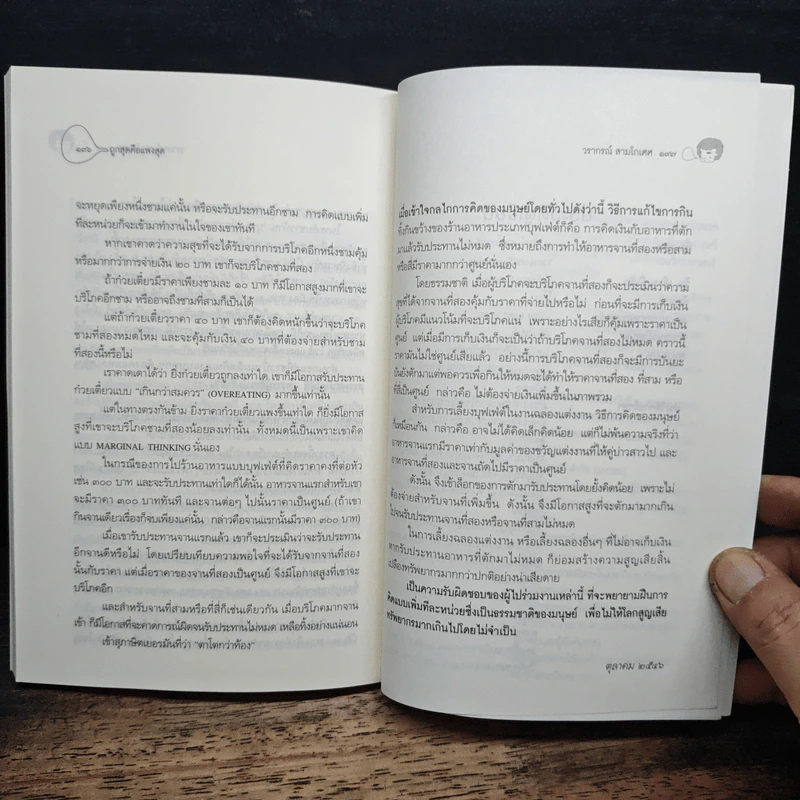 ๑๗๖ ถูกสุดคือแพงสุด
จะหยุดเพียงหนึ่งชามแค่นั้น หรือจะรับประทานอีกชาม การคิดแบบเพิ่ม
ทีละหน่วยก็จะเข้ามาทำงานในใจของเขาทันที
หากเขาคาดว่าความสุขที่จะได้รับจากการบริโภคอีกหนึ่งชามคุ้ม
หรือมากกว่าการจ่ายเงิน ๒๐ บาท เขาก็จะบริโภคชามที่สอง
ถ้าก๋วยเตี๋ยวมีราคาเพียงชามละ ๑๐ บาท ก็มีโอกาสสูงมากที่เขาจะ
บริโภคอีกชาม หรืออาจถึงชามที่สามก็เป็นได้
แต่ถ้าก๋วยเตี๋ยวราคา ๔๐ บาท เขาก็ต้องคิดหนักขึ้นว่าจะบริโภค
ชามที่สองหมดไหม และจะคุ้มกับเงิน ๔๐ บาทที่ต้องจ่ายสำหรับชาม
ที่สองนี้หรือไม่
เราคาดเดาได้ว่า ยิ่งก๋วยเตี๋ยวถูกลงเท่าใด เขาก็มีโอกาสรับประทาน
ก๋วยเตี๋ยวแบบ "เกินกว่าสมควร" (OVEREATING) มากขึ้นเท่านั้น
แต่ในทางตรงกันข้าม ยิ่งราคาก๋วยเตี๋ยวแพงขึ้นเท่าใด ก็ยิ่งมีโอกาส
สูงที่เขาจะบริโภคชามที่สองน้อยลงเท่านั้น ทั้งหมดนี้เป็นเพราะเขาคิด
แบบ MARGINAL THINKING นั่นเอง
ในกรณีของการไปร้านอาหารแบบบุฟเฟ่ต์ที่คิดราคาคงที่ต่อหัว
เช่น ๓๐๐ บาท และจะรับประทานเท่าใดก็ได้นั้น อาหารจานแรกสำหรับเขา
จะมีราคา ๓๐๐ บาททันที และจานต่อๆ ไปนั้นราคาจะเป็นศูนย์ (ถ้าเขา
กินจานเดียวเรื่องก็จบเพียงแค่นั้น กล่าวคือจานแรกนั้นมีราคา ๓๐๐ บาท)
เมื่อเขารับประทานจานแรกแล้ว เขาก็จะประเมินว่าจะรับประทาน
อีกจานดีหรือไม่ โดยเปรียบเทียบความพอใจที่จะได้รับจากจานที่สอง
นั้นกับราคา แต่เมื่อราคาของจานที่สองเป็นศูนย์ จึงมีโอกาสสูงที่เขาจะ
บริโภคอีก
และสำหรับจานที่สามหรือที่สี่ก็เช่นเดียวกัน เมื่อบริโภคมากจาน
เข้า ก็มีโอกาสที่จะคาดการณ์ผิดจนรับประทานไม่หมด เหลือทิ้งอย่างแน่นอน
เข้าสุภาษิตเยอรมันที่ว่า "ตาโตกว่าท้อง"
วรากรณ์ สามโกเศศ ๑๗๗
เมื่อเข้าใจกลไกการคิดของมนุษย์โดยทั่วไปดังว่านี้ วิธีการแก้ไขการกิน
ทิ้งกินขว้างของร้านอาหารประเภทบุฟเฟ่ต์ก็คือ การคิดเงินกับอาหารที่ตัก
มาแล้วรับประทานไม่หมด ซึ่งหมายถึงการทำให้อาหารจานที่สองหรือสาม
หรือสี่มีราคามากกว่าศูนย์นั่นเอง
โดยธรรมชาติ เมื่อผู้บริโภคจะบริโภคจานที่สองก็จะประเมินว่าความ
สุขที่ได้จากจานที่สองคุ้มกับราคาที่จ่ายไปหรือไม่ ก่อนที่จะมีการเก็บเงิน
ผู้บริโภคมีแนวโน้มที่จะบริโภคแน่ เพราะอย่างไรเสียก็คุ้มเพราะราคาเป็น
ศูนย์ แต่เมื่อมีการเก็บเงินก็จะเป็นว่าถ้าบริโภคจานที่สองไม่หมด คราวนี้
ราคามันไม่ใช่ศูนย์เสียแล้ว อย่างนี้การบริโภคจานที่สองก็จะมีการบันยะ
บันยังตักมาแต่พอควรเพื่อกินให้หมดจะได้ทำให้ราคาจานที่สอง ที่สาม หรือ
ที่สี่เป็นศูนย์ กล่าวคือ ไม่ต้องจ่ายเงินเพิ่มขึ้นในภาพรวม
สำหรับการเลี้ยงบุฟเฟ่ต์ในงานฉลองแต่งงาน วิธีการคิดของมนุษย์
ก็เหมือนกัน กล่าวคือ อาจไม่ได้คิดเล็กคิดน้อย แต่ก็ไม่พ้นความจริงที่ว่า
อาหารจานแรกมีราคาเท่ากับมูลค่าของขวัญแต่งงานที่ให้คู่บ่าวสาวไป และ
อาหารจานที่สองและจานถัดไปมีราคาเป็นศูนย์
ดังนั้น จึงเข้าล็อกของการตักมารับประทานโดยยั้งคิดน้อย เพราะไม่
ต้องจ่ายสำหรับจานที่เพิ่มขึ้น ดังนั้น จึงมีโอกาสสูงที่จะตักมามากเกิน
ไปจนรับประทานจานที่สองหรือจานที่สามไม่หมด
ในการเลี้ยงฉลองแต่งงาน หรือเลี้ยงฉลองอื่นๆ ที่ไม่อาจเก็บเงิน
หากรับประทานอาหารที่ตักมาไม่หมด ก็ย่อมสร้างความสูญเสียสิ้น
เปลืองทรัพยากรมากกว่าปกติอย่างน่าเสียดาย
เป็นความรับผิดชอบของผู้ไปร่วมงานเหล่านี้ ที่จะพยายามฝืนการ
คิดแบบเพิ่มทีละหน่วยซึ่งเป็นธรรมชาติของมนุษย์ เพื่อไม่ให้โลกสูญเสีย
ทรัพยากรมากเกินไปโดยไม่จำเป็น
ตุลาคม ๒๕๔๖